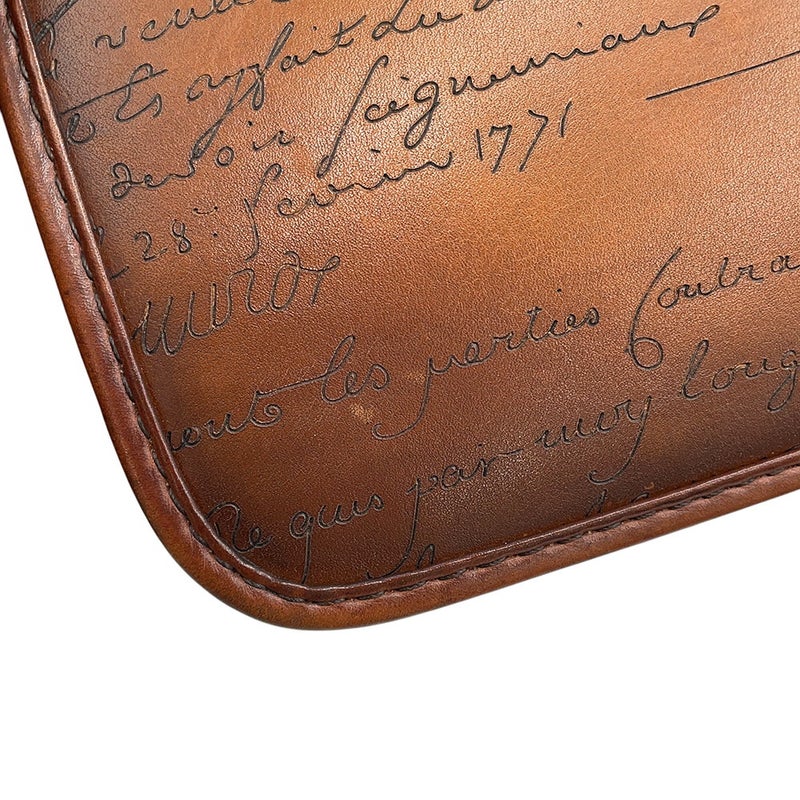 veule
et s ayfait du
devoir seigneuriaux
28: fevrier 1771
vont les parties Contra
Re quis par moy long